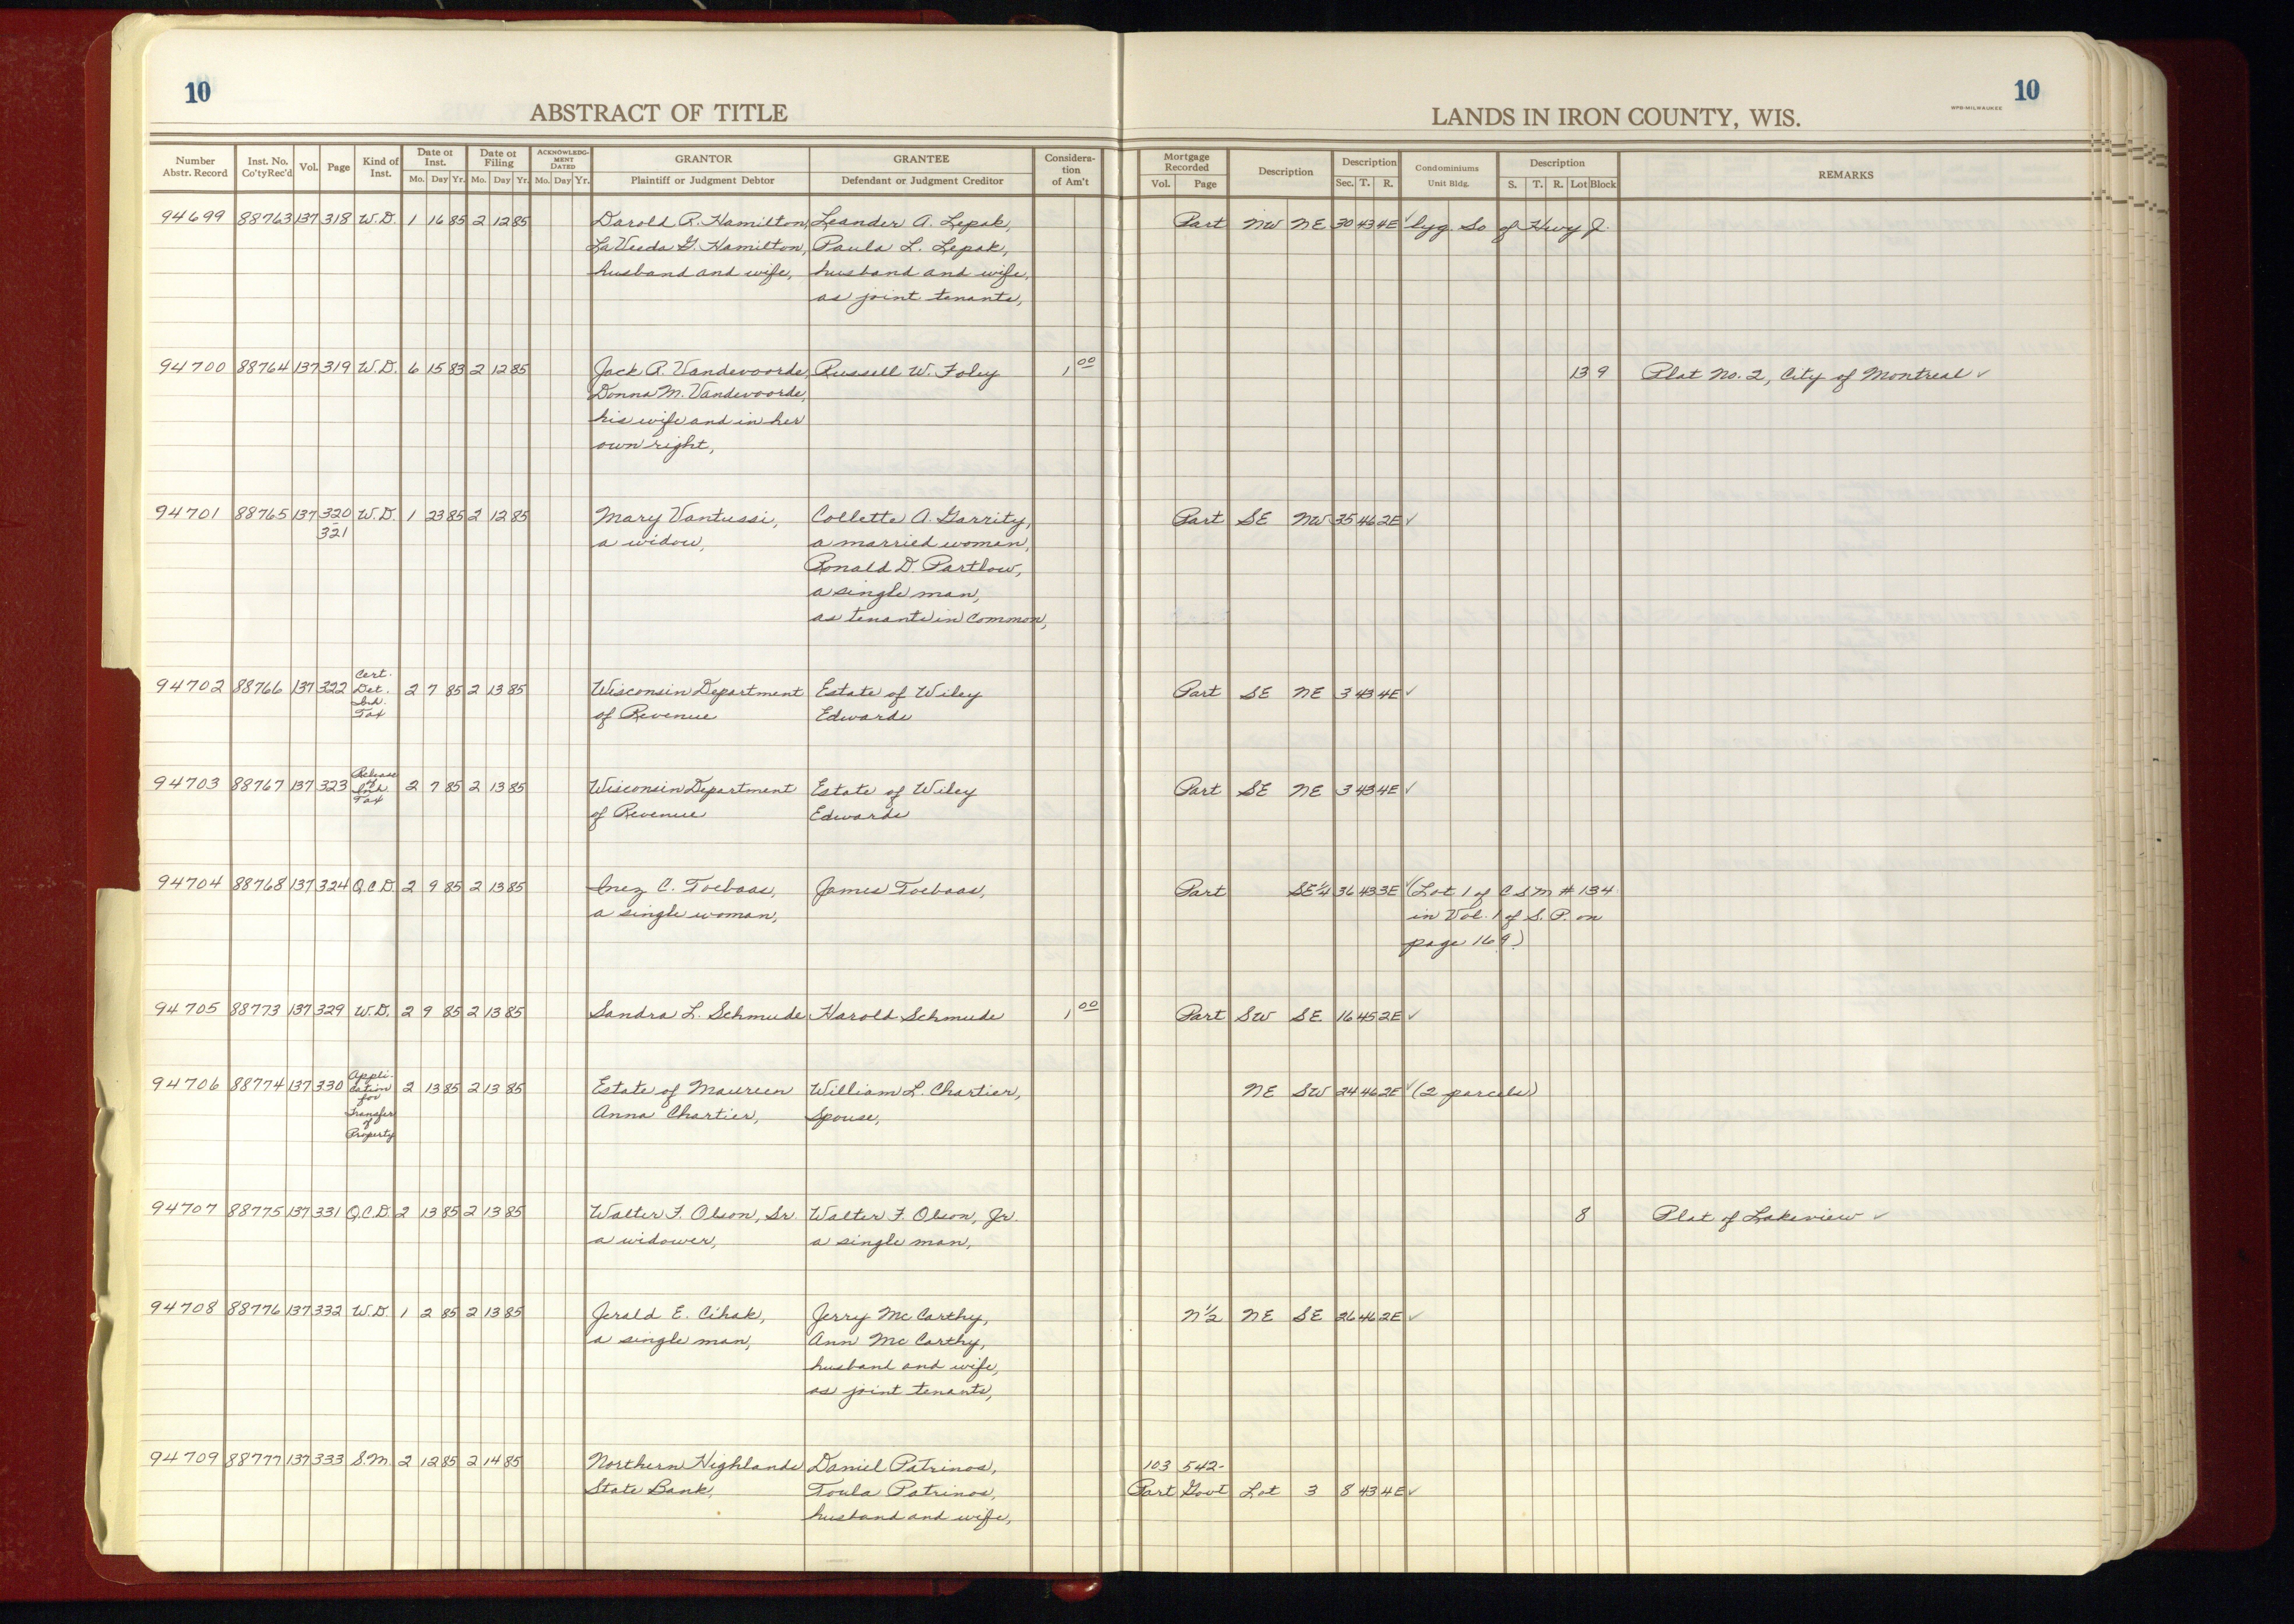 10
10
WPB-MILWAUKEE
ABSTRACT OF TITLE
LANDS IN IRON COUNTY, WIS.
Number Abstr. Record | Inst. No. Co'ty Rec'd | Vol. | Page | Kind of Inst. | Date of Inst. Mo. Day Yr. | Date of Filing Mo. Day Yr. | ACKNOWLEDGMENT DATED Mo. Day Yr. | GRANTOR Plaintiff or Judgment Debtor | GRANTEE Defendant or Judgment Creditor | Consideration of Am't | Mortgage Recorded Vol. Page | Description | Description Sec. T. R. | Condominiums Unit Bldg. | Description S. T. R. Lot Block | REMARKS
94699 88763 137 318 W.D. 1 16 85 2 12 85 Darold R. Hamilton, Leander A. Lepak, Part NW NE 30 43 4E ✓ lyg. So of Hwy J.
LaVeeda G. Hamilton, Paula L. Lepak,
husband and wife, husband and wife,
as joint tenants,
94700 88764 137 319 W.D. 6 15 83 2 12 85 Jack R. Vandevoorde, Russell W. Foley 1 00 13 9 Plat No. 2, City of Montreal ✓
Donna M. Vandevoorde,
his wife and in her
own right,
94701 88765 137 320 - 321 W.D. 1 23 85 2 12 85 Mary Vantussi, Collette A. Garrity, Part SE NW 35 46 2E ✓
a widow, a married woman,
Ronald D. Partlow,
a single man,
as tenants in common,
94702 88766 137 322 Cert. Det. Inh. Tax 2 7 85 2 13 85 Wisconsin Department Estate of Wiley Part SE NE 3 43 4E ✓
of Revenue Edwards
94703 88767 137 323 Release of Inh Tax 2 7 85 2 13 85 Wisconsin Department Estate of Wiley Part SE NE 3 43 4E ✓
of Revenue Edwards
94704 88768 137 324 Q.C.D. 2 9 85 2 13 85 Inez C. Toebaas, James Toebaas, Part SE¼ 36 43 3E ✓ (Lot 1 of CSM # 134
a single woman, in Vol. 1 of S.P. on
page 169)
94705 88773 137 329 W.D. 2 9 85 2 13 85 Sandra L. Schmude Harold Schmude 1 00 Part SW SE 16 45 2E ✓
94706 88774 137 330 Appli-cation for Transfer of Property 2 13 85 2 13 85 Estate of Maureen William L. Chartier, NE SW 24 46 2E ✓ (2 parcels)
Anna Chartier, Spouse,
94707 88775 137 331 Q.C.D. 2 13 85 2 13 85 Walter F. Olson, Sr. Walter F. Olson, Jr. 8 Plat of Lakeview ✓
a widower, a single man,
94708 88776 137 332 W.D. 1 2 85 2 13 85 Jerald E. Cihak, Jerry McCarthy, N½ NE SE 26 46 2E ✓
a single man, Ann McCarthy,
husband and wife,
as joint tenants,
94709 88777 137 333 S.M. 2 12 85 2 14 85 Northern Highlands Daniel Patrinos, 103 542-
State Bank, Toula Patrinos, Part Govt Lot 3 8 43 4E ✓
husband and wife,